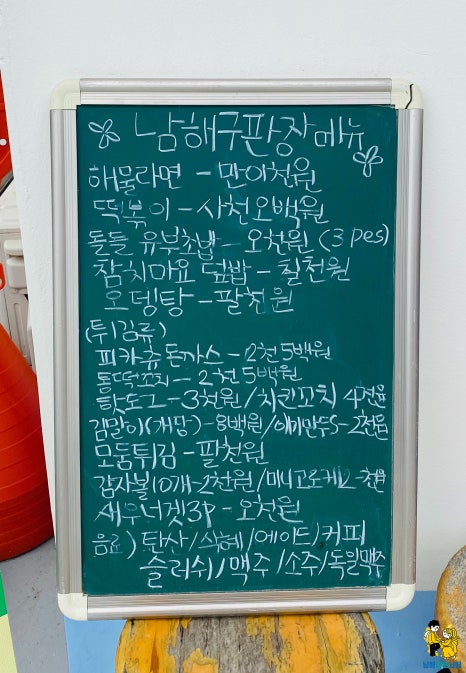 남해구판장메뉴
해물라면 - 만이천원
떡볶이 - 사천오백원
돌돌 유부초밥 - 오천원 (3 pes)
참치마요 덮밥 - 칠천원
오뎅탕 - 팔천원
(튀김류)
피카츄돈까스 - 2천5백원
통떡꼬치 - 2천5백원
핫도그 - 3천원 / 치킨꼬치 4천원
김말이(개당) - 8백원 / 야끼만두5 - 2천원
모둠튀김 - 팔천원
감자볼10개 - 2천원 / 미니고로케2 - 천원
새우너겟3P - 오천원
음료) 탄산 / 식혜 / 에이드 / 커피
슬러쉬 / 맥주 / 소주 / 독일맥주